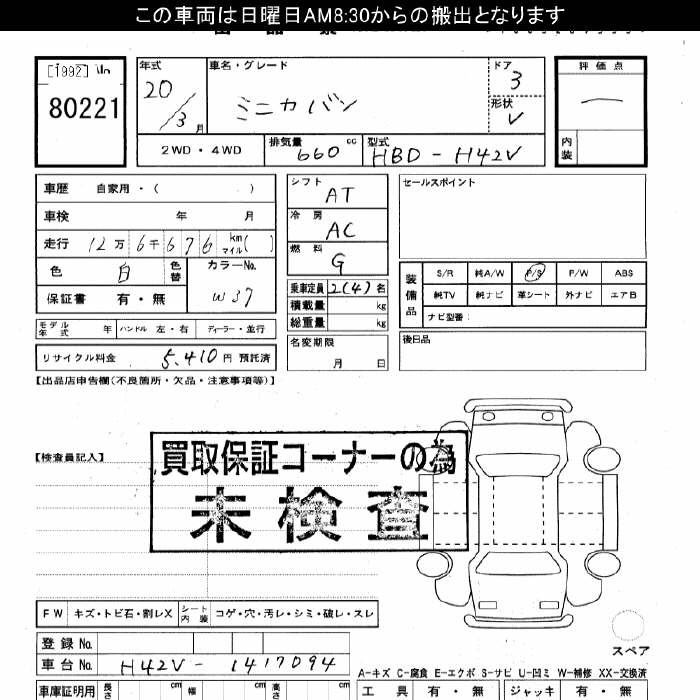 この車両は日曜日AM8:30からの搬出となります
[1992]
80221
年式
20/3月
車名・グレード
ミニカバン
ドア
3
形状
V
評価点
一
内装
2WD・4WD
排気量 660 cc
型式 HBD-H42V
車歴 自家用・( )
車検 年 月
走行 12万6千676 km マイル( )
色 白 色替
カラーNo. W37
保証書 有・無
モデル年式 年 ハンドル 左・右 ディーラー・並行
リサイクル料金 5,410円 預託済
シフト AT
冷房 AC
燃料 G
乗車定員 2(4)名
積載量 kg
総重量 kg
名変期限
月 日
セールスポイント
装備品
S/R 純A/W P/S P/W ABS
純TV 純ナビ 革シート 外ナビ エアB
ナビ型番:
後日品
【出品店申告欄(不良箇所・欠品・注意事項等)】
【検査員記入】
買取保証コーナーの為
未検査
FW キズ・トビ石・割レX シート内装 コゲ・穴・汚レ・シミ・破レ・スレ
スペア
登録No.
車台No. H42V-1417094
A-キズ C-腐食 E-エクボ S-サビ U-凹ミ W-補修 XX-交換済
車庫証明用 長さ cm 幅 cm 高さ cm
工具 有・無 ジャッキ 有・無